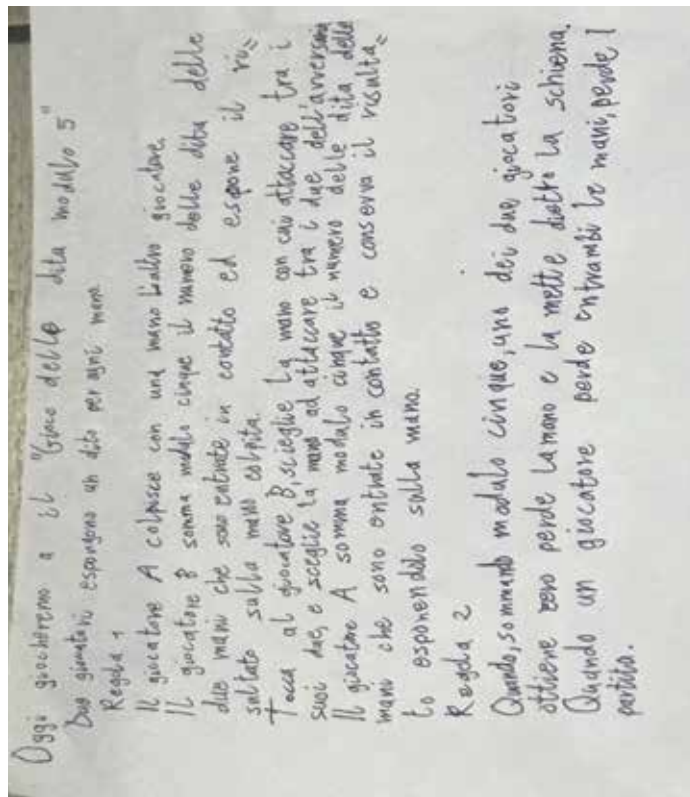 Oggi giocheremo a il "Gioco delle dita modulo 5"
Due giocatori espongono un dito per ogni mano.
Regola 1
Il giocatore A colpisce con una mano l'altro giocatore.
Il giocatore B somma modulo cinque il numero delle dita delle
due mani che sono entrate in contatto ed espone il ri=
sultato sulla mano colpita.
Tocca al giocatore B, sceglie la mano con cui attaccare tra i
suoi due, e sceglie la mano ad attaccare tra i due dell'avversario
Il giocatore A somma modulo cinque il numero delle dita delle
mani che sono entrate in contatto e conserva il risulta=
to esponendolo sulla mano.
Regola 2
Quando, sommando modulo cinque, uno dei due giocatori
ottiene zero perde la mano e la mette dietro la schiena.
Quando un giocatore perde entrambi le mani, perde l
partita.